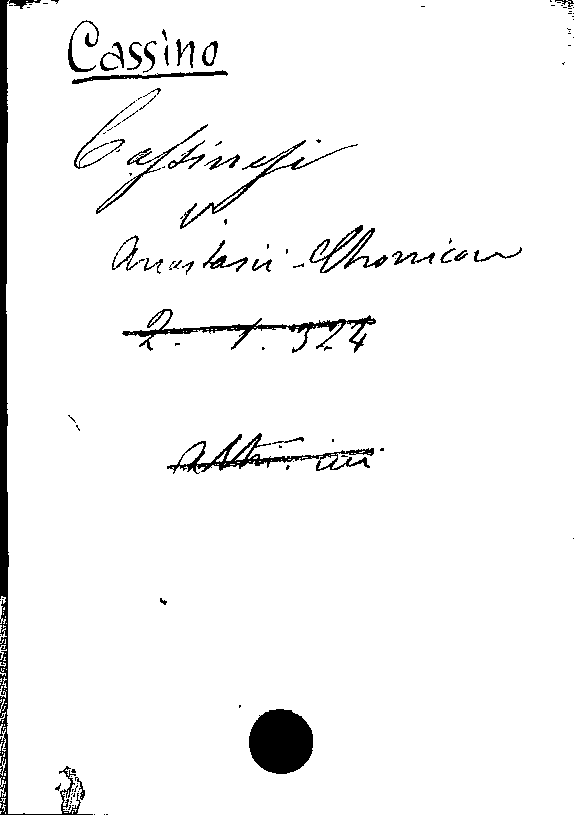 Cassino
Cassinesi
v.
Anastasii Chronicon
2. 1. 324
altri ivi